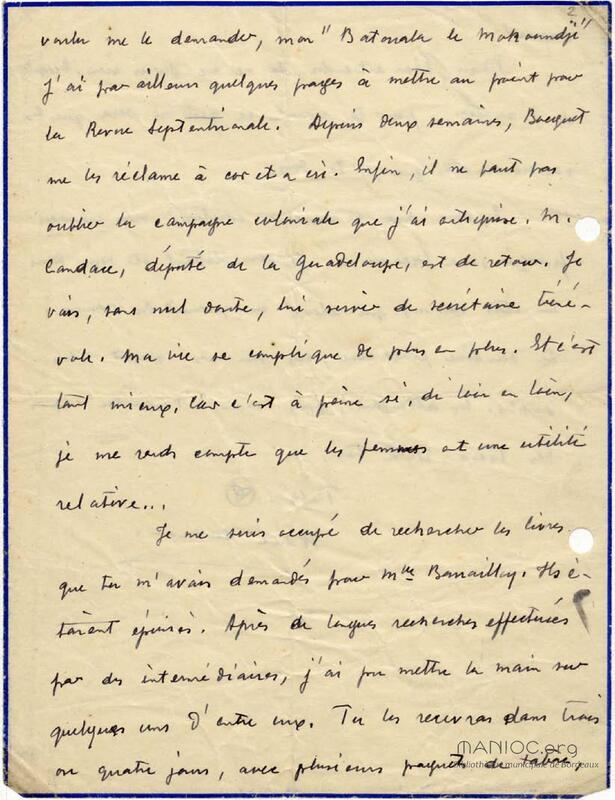 2
voulu me le demander, mon "Batouala le Mokoundji"
J'ai par ailleurs quelques pages à mettre au point pour
la Revue Septentrionale. Depuis deux semaines, Bocquet
me les réclame à cor et a cri. Enfin, il ne faut pas
oublier la campagne coloniale que j'ai entreprise. M.
Candace, député de la Guadeloupe, est de retour. Je
vais, sans nul doute, lui servir de secrétaire béné-
vole. Ma vie se complique de plus en plus. Et c'est
tant mieux. Car c'est à peine si, de loin en loin,
je me rends compte que les femmes ont une utilité
relative...
Je me suis occupé de rechercher les livres
que tu m'avais demandés pour Mlle Barailley. Ils é-
taient épuisés. Après de longues recherches effectuées
par des intermédiaires, j'ai pu mettre la main sur
quelques uns d'entre eux. Tu les recevras dans trois
ou quatre jours, avec plusieurs paquets de tabac,
MANIOC.org
Bibliothèque municipale de Bordeaux